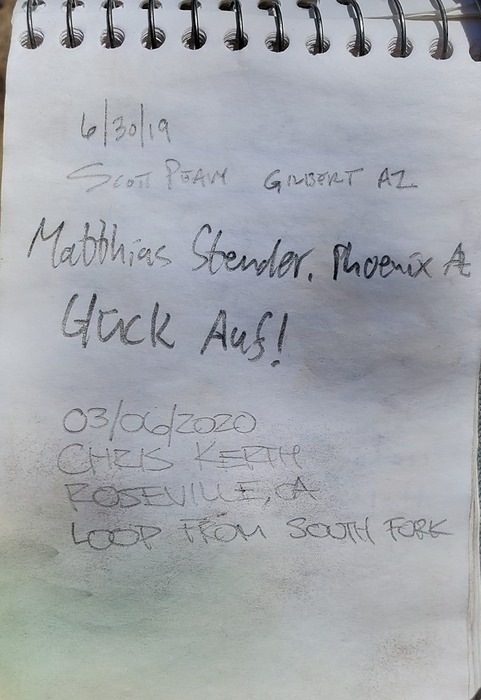 6/30/19
Scott Peavy Gilbert AZ
Matthias Stender, Phoenix AZ
Glück Auf!
03/06/2020
CHRIS KERTH
ROSEVILLE, CA
LOOP FROM SOUTH FORK